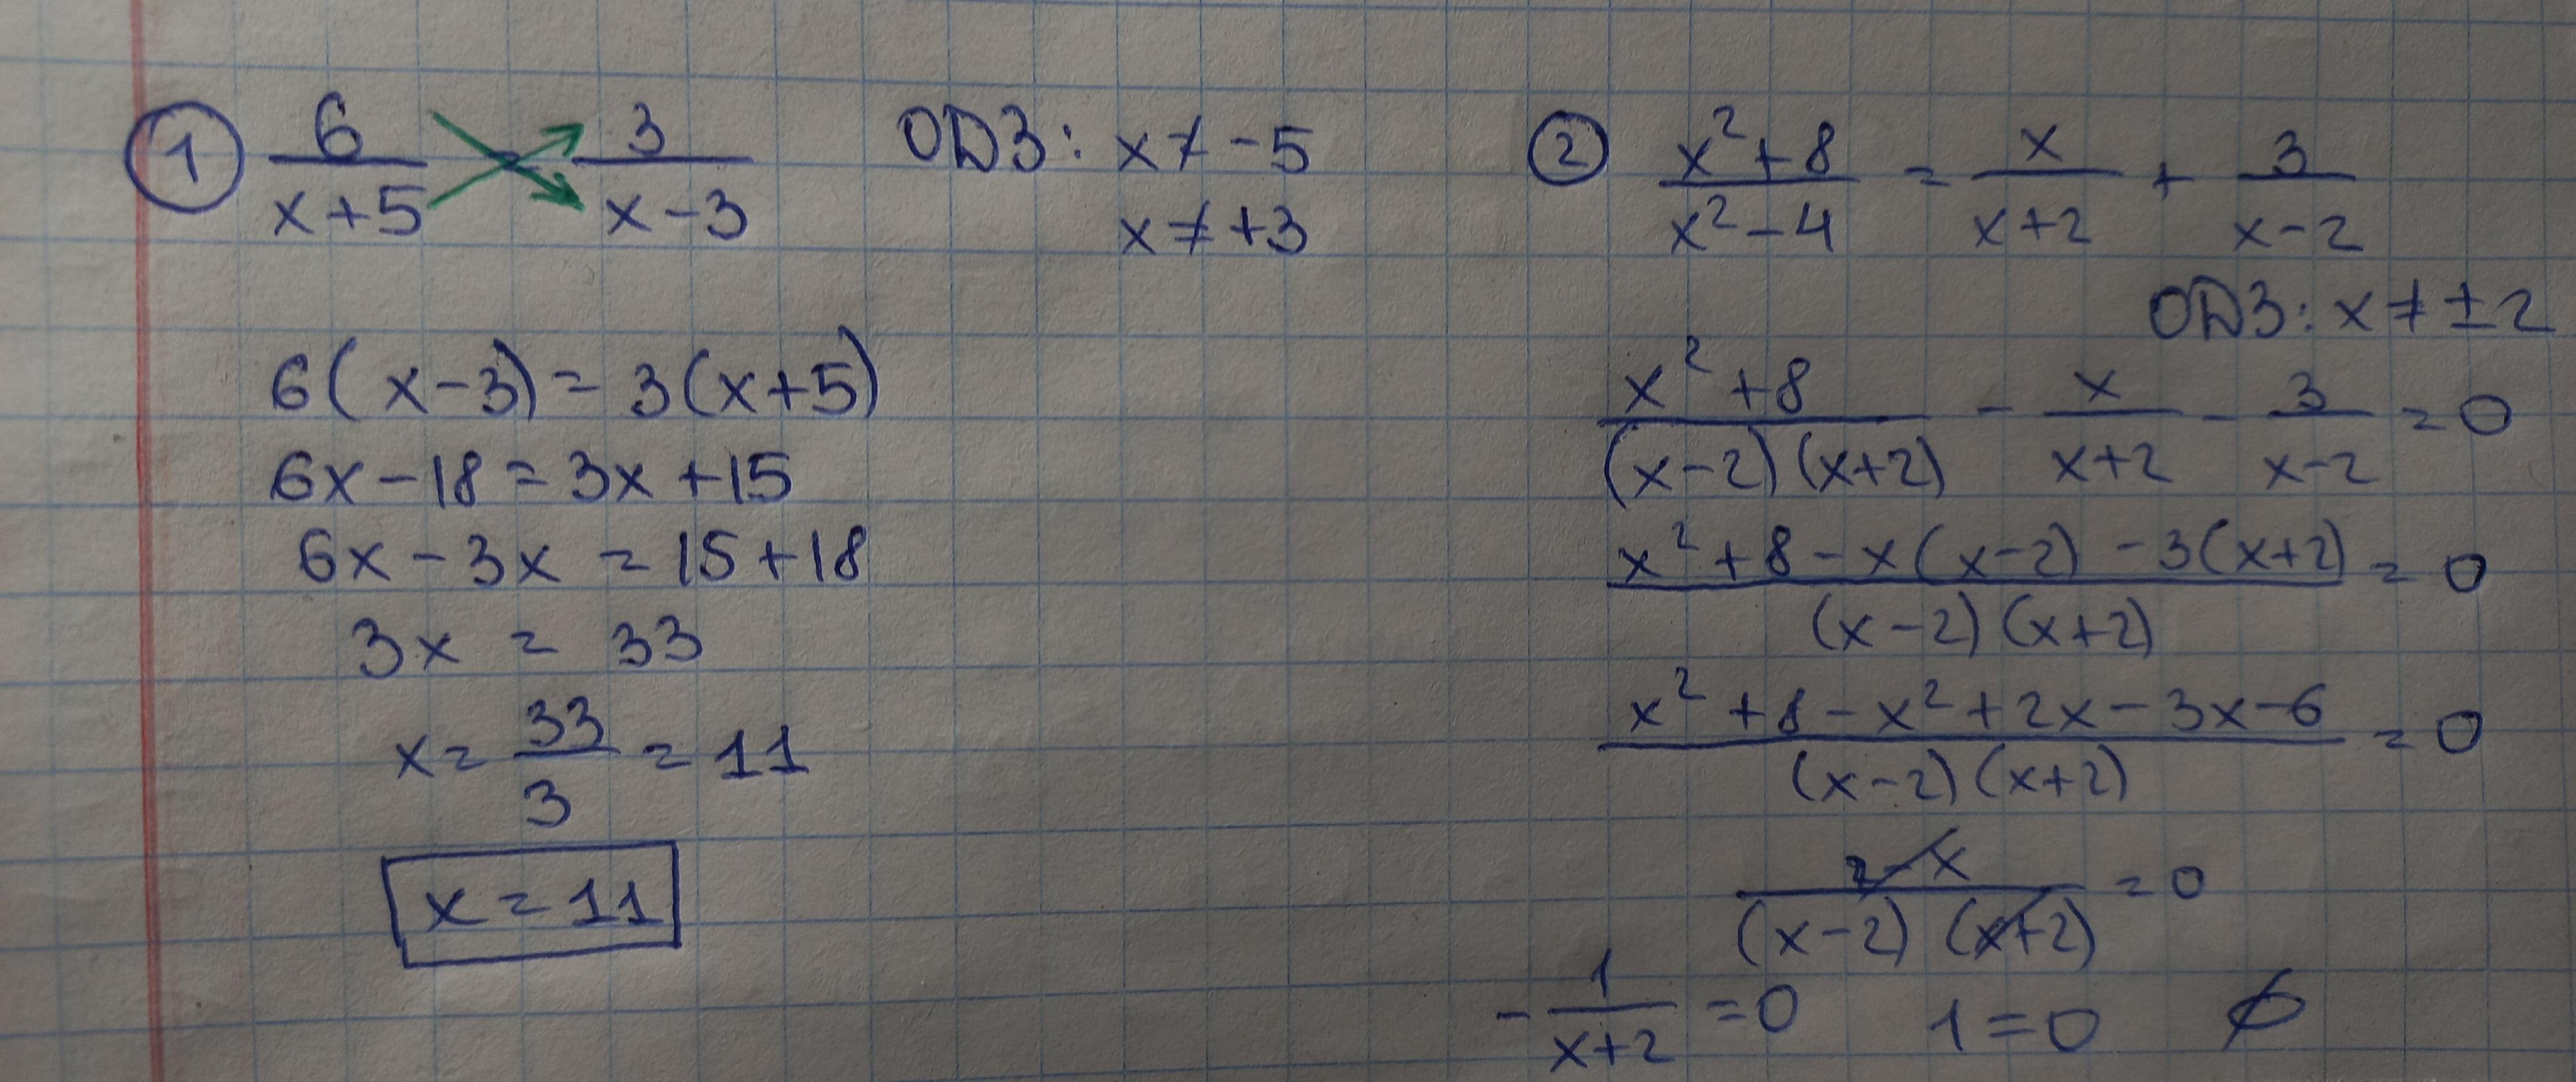 ① 6/(x+5) = 3/(x-3) ОДЗ: x ≠ -5
x ≠ +3
6(x-3) = 3(x+5)
6x - 18 = 3x + 15
6x - 3x = 15 + 18
3x = 33
x = 33/3 = 11
x = 11
② (x²+8)/(x²-4) = x/(x+2) + 3/(x-2)
ОДЗ: x ≠ ±2
(x²+8)/((x-2)(x+2)) - x/(x+2) - 3/(x-2) = 0
(x²+8-x(x-2)-3(x+2))/((x-2)(x+2)) = 0
(x²+8-x²+2x-3x-6)/((x-2)(x+2)) = 0
(2-x)/((x-2)(x+2)) = 0
-1/(x+2) = 0 1=0 ∅